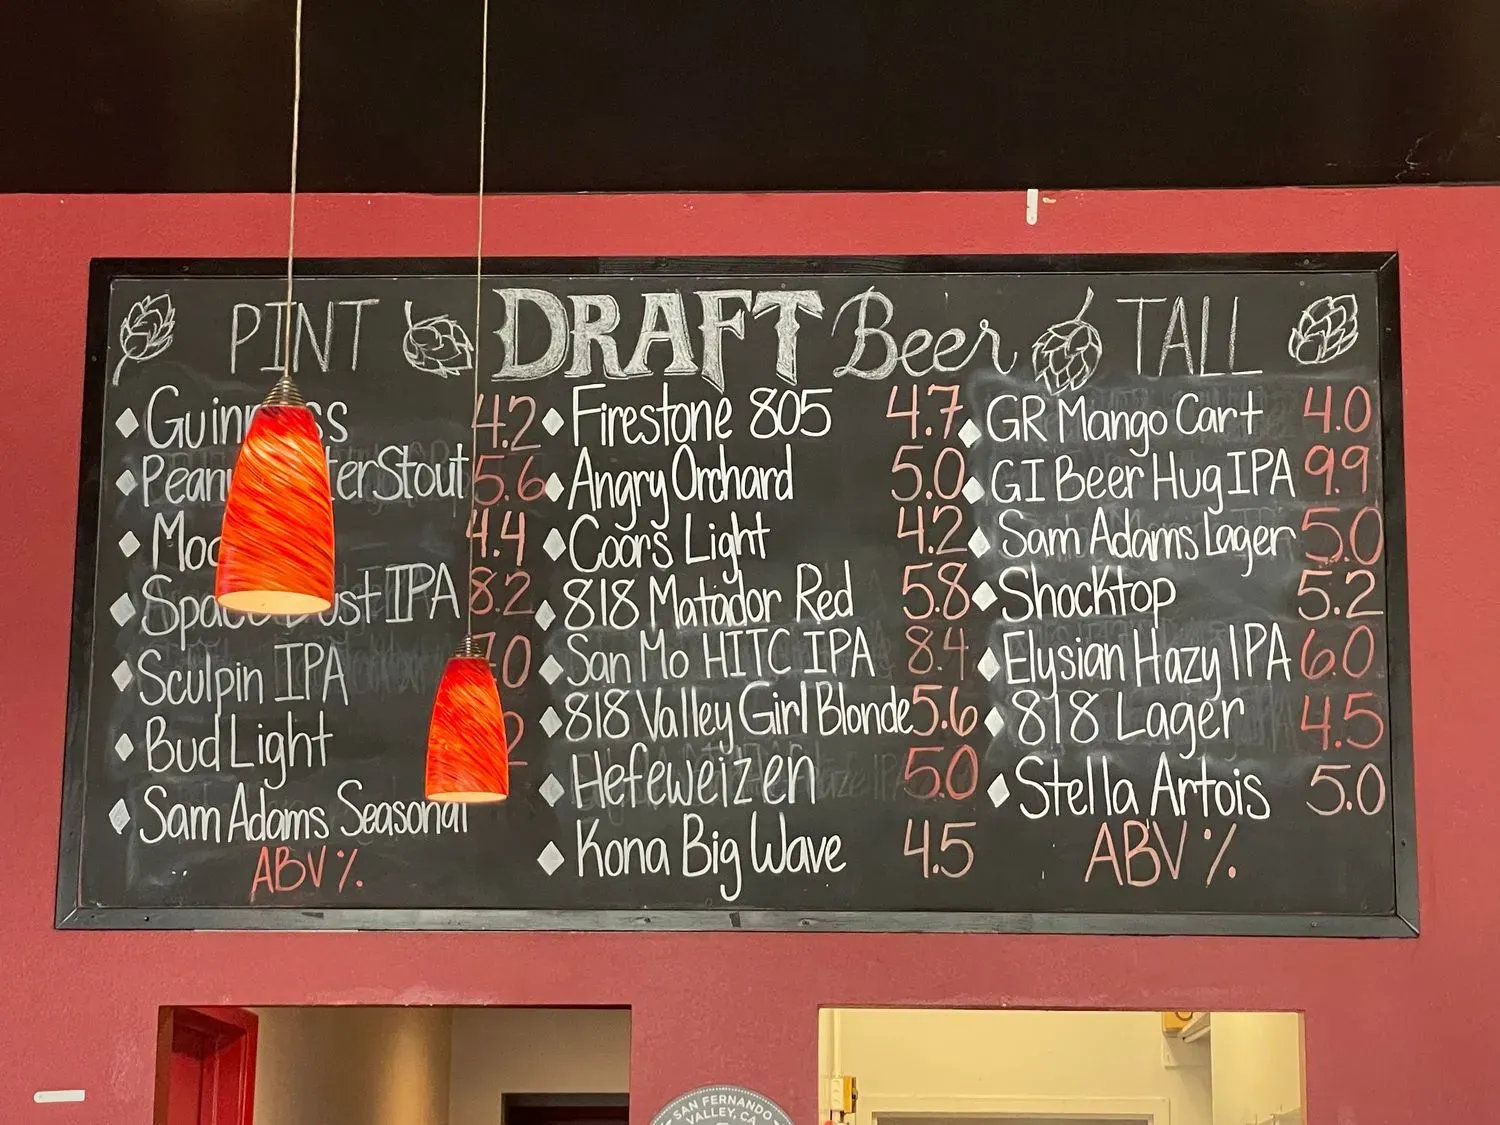 PINT DRAFT Beer TALL
Guinness 4.2
Stout 5.6
4.4
IPA 8.2
Sculpin IPA
Bud Light
Sam Adams Seasonal
ABV %
Firestone 805 4.7
Angry Orchard 5.0
Coors Light 4.2
818 Matador Red 5.8
San Mo HITC IPA 8.4
818 Valley Girl Blonde 5.6
Hefeweizen 5.0
Kona Big Wave 4.5
GR Mango Cart 4.0
GI Beer Hug IPA 9.9
Sam Adams Lager 5.0
Shocktop 5.2
Elysian Hazy IPA 6.0
818 Lager 4.5
Stella Artois 5.0
ABV %
SAN FERNANDO
VALLEY, CA